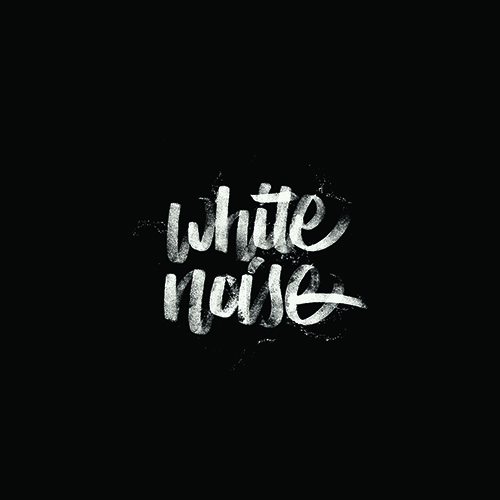 white
noise